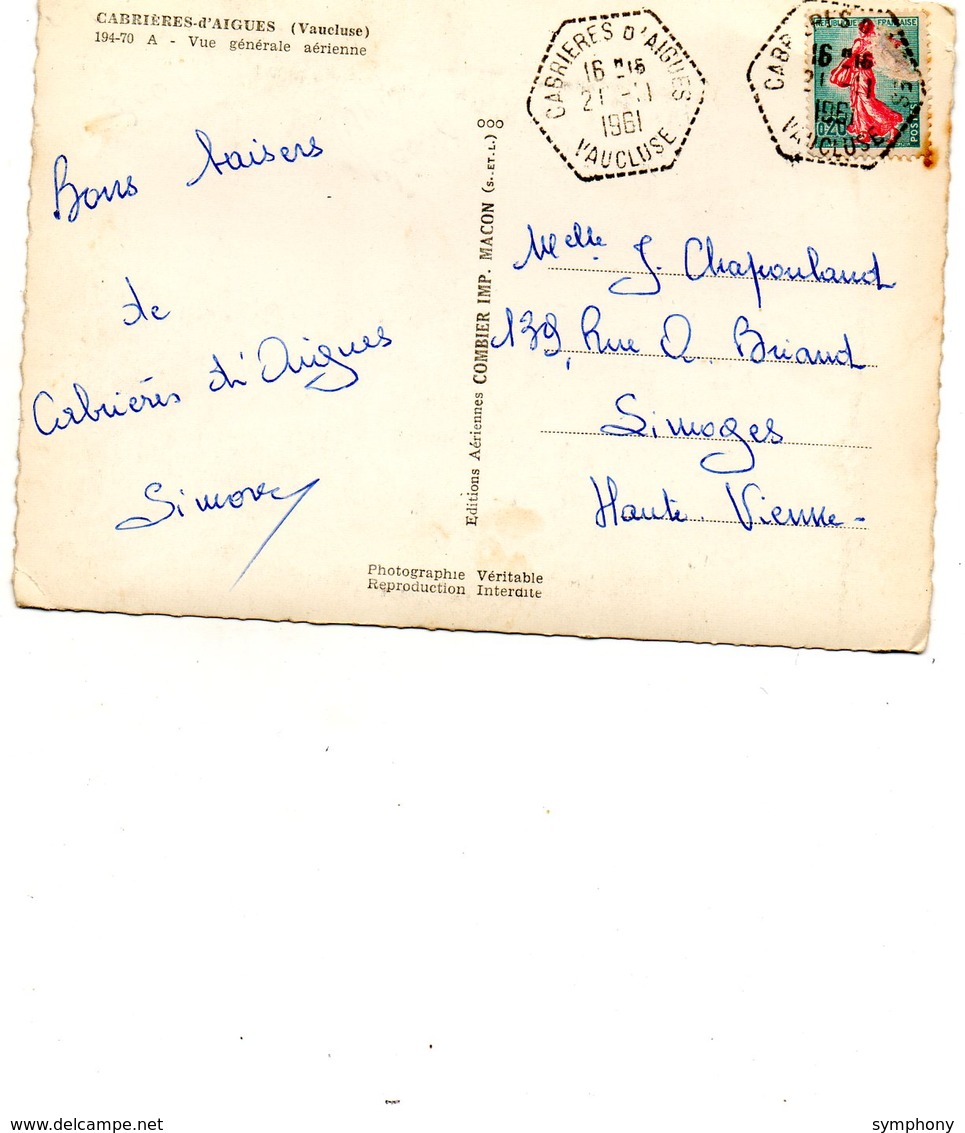 CABRIÈRES-d'AIGUES (Vaucluse)
194-70 A - Vue générale aérienne
Bons baisers
de
Cabrières d'Aigues
Simone
Editions Aériennes COMBIER IMP. MACON (S.-ET-L.)
ooo
Photographie Véritable
Reproduction Interdite
CABRIERES D'AIGUES
16 H 15
21 -11
1961
VAUCLUSE
REPUBLIQUE FRANÇAISE
0,20
POSTES
16 H 15
21 -11
1961
VAUCLUSE
Melle J. Chapouland
139, Rue A. Briand
Limoges
Haute. Vienne -
www.delcampe.net
symphony